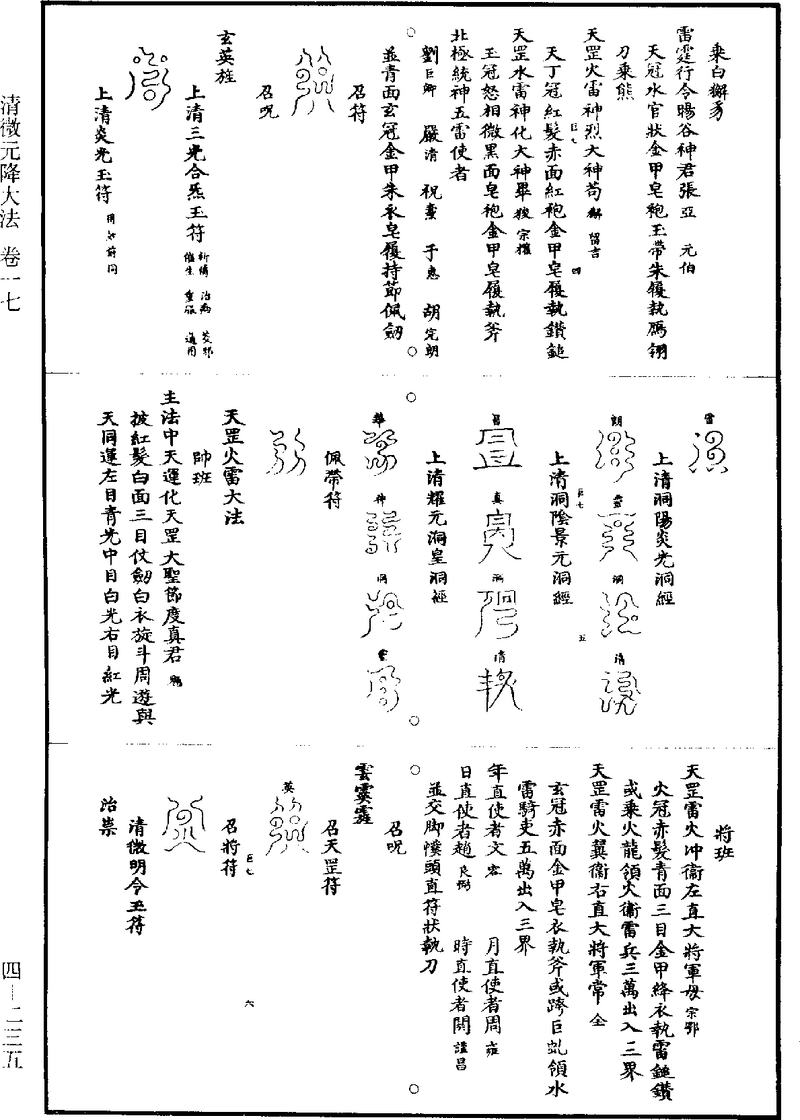 乘白獬豸
雷霆行令暘谷神君張亞 元伯
天冠水官狀金甲皂袍玉帶朱履執鴈翎
刀乘熊
天罡火雷神烈大神苟 留吉
天丁冠紅髮赤面紅袍金甲皂履執鑽鎚
天罡水雷神化大神畢 宗權
玉冠怒相微黑面皂袍金甲皂履執斧
北極統神五雷使者
劉巨卿 嚴清 祝 于 胡完朗
並青面玄冠金甲朱衣皂履持節佩劒
召符
召呪
玄英旌
上清三光合炁玉符 祈禱 治病 催生 通用
上清炎光玉符 用如前同
雷
上清洞陽炎光洞經
朗 靈 洞 清
上清洞陰景元洞經
昌 真 洞 清
上清耀元洞皇洞經
華 神 洞
佩帶符
天罡火雷大法
帥班
主法中天運化天罡大聖節度真君
披紅髮白面三目仗劒白衣旋斗周遊與
天同運左目青光中目白光右目紅光
將班
天罡雷火冲衞左直大將軍 宗鄂
火冠赤髮青面三目金甲絳衣執雷鎚鑽
或乘火龍領火衞雷兵三萬出入三界
天罡雷火翼衞右直大將軍常 全
玄冠赤面金甲皂衣執斧或跨巨虬領水
雷騎吏五萬出入三界
年直使者文 月直使者周雍
日直使者趙 時直使者關謹昌
並交脚幞頭直符狀執刀
召呪
雲
召天罡符
英
召將符
清微明令玉符
治祟
巨七 四
巨七 五
巨七 六
清微元降大法 卷一七
四—二三五